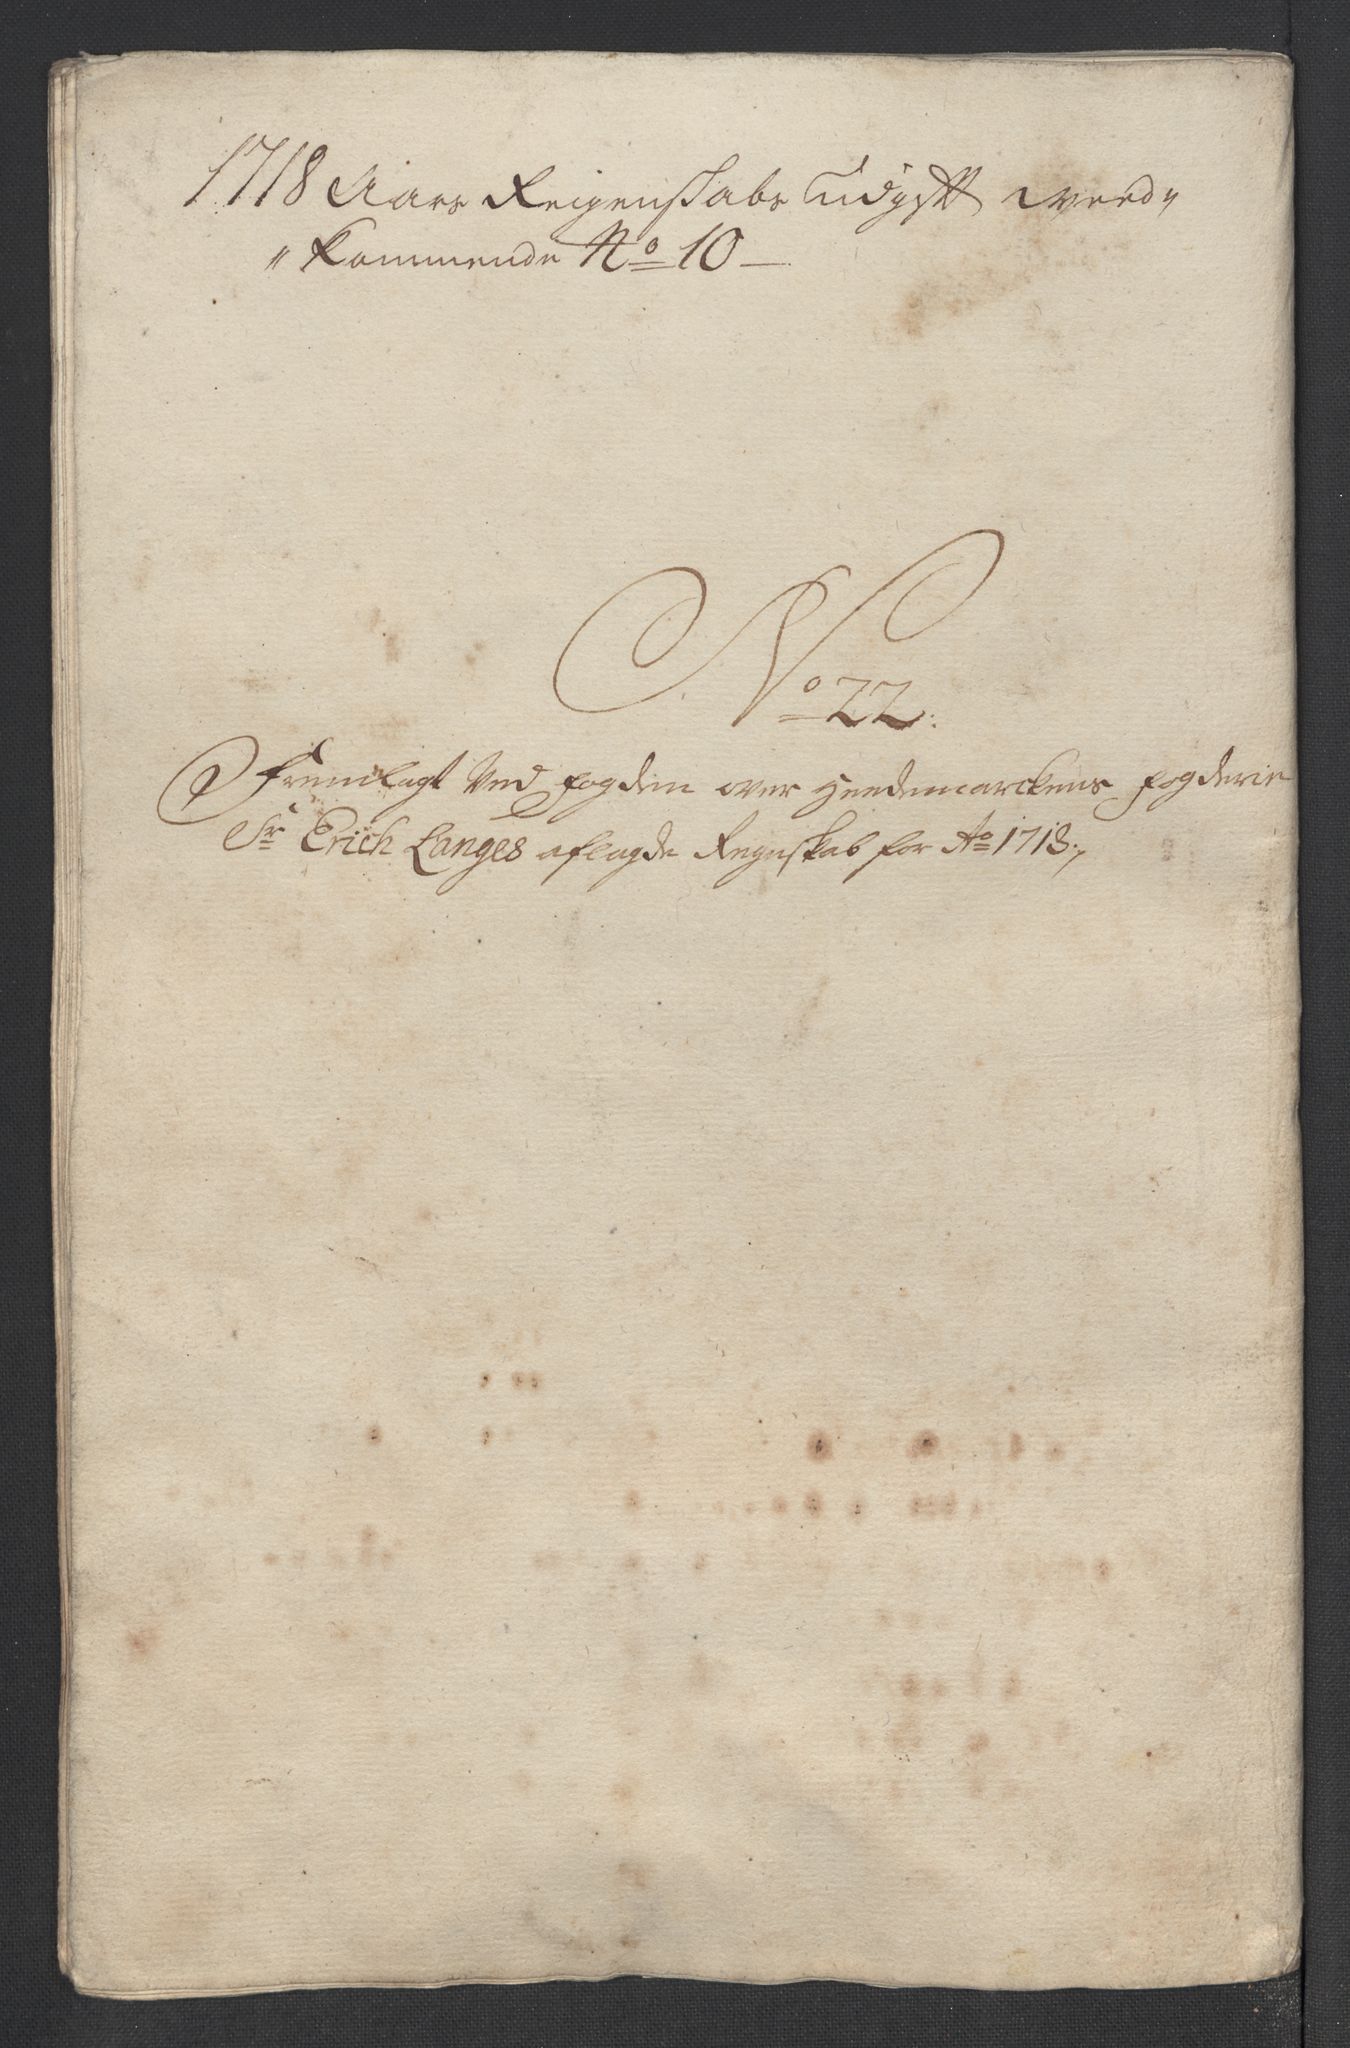 1718 Aars Reigenskabs Udgift vved„
„kommende No 10 —
No 22.
Fremlagt Ved fogden over Heedemarckens fogderie
Sr Erich Langes aflagde Regnskab for Ao 1718.